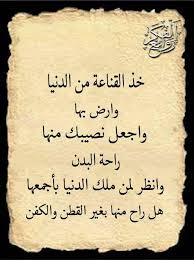 خذ القناعة من الدنيا
وارض بها
واجعل نصيبك منها
راحة البدن
وانظر لمن ملك الدنيا بأجمعها
هل راح منها بغير القطن والكفن